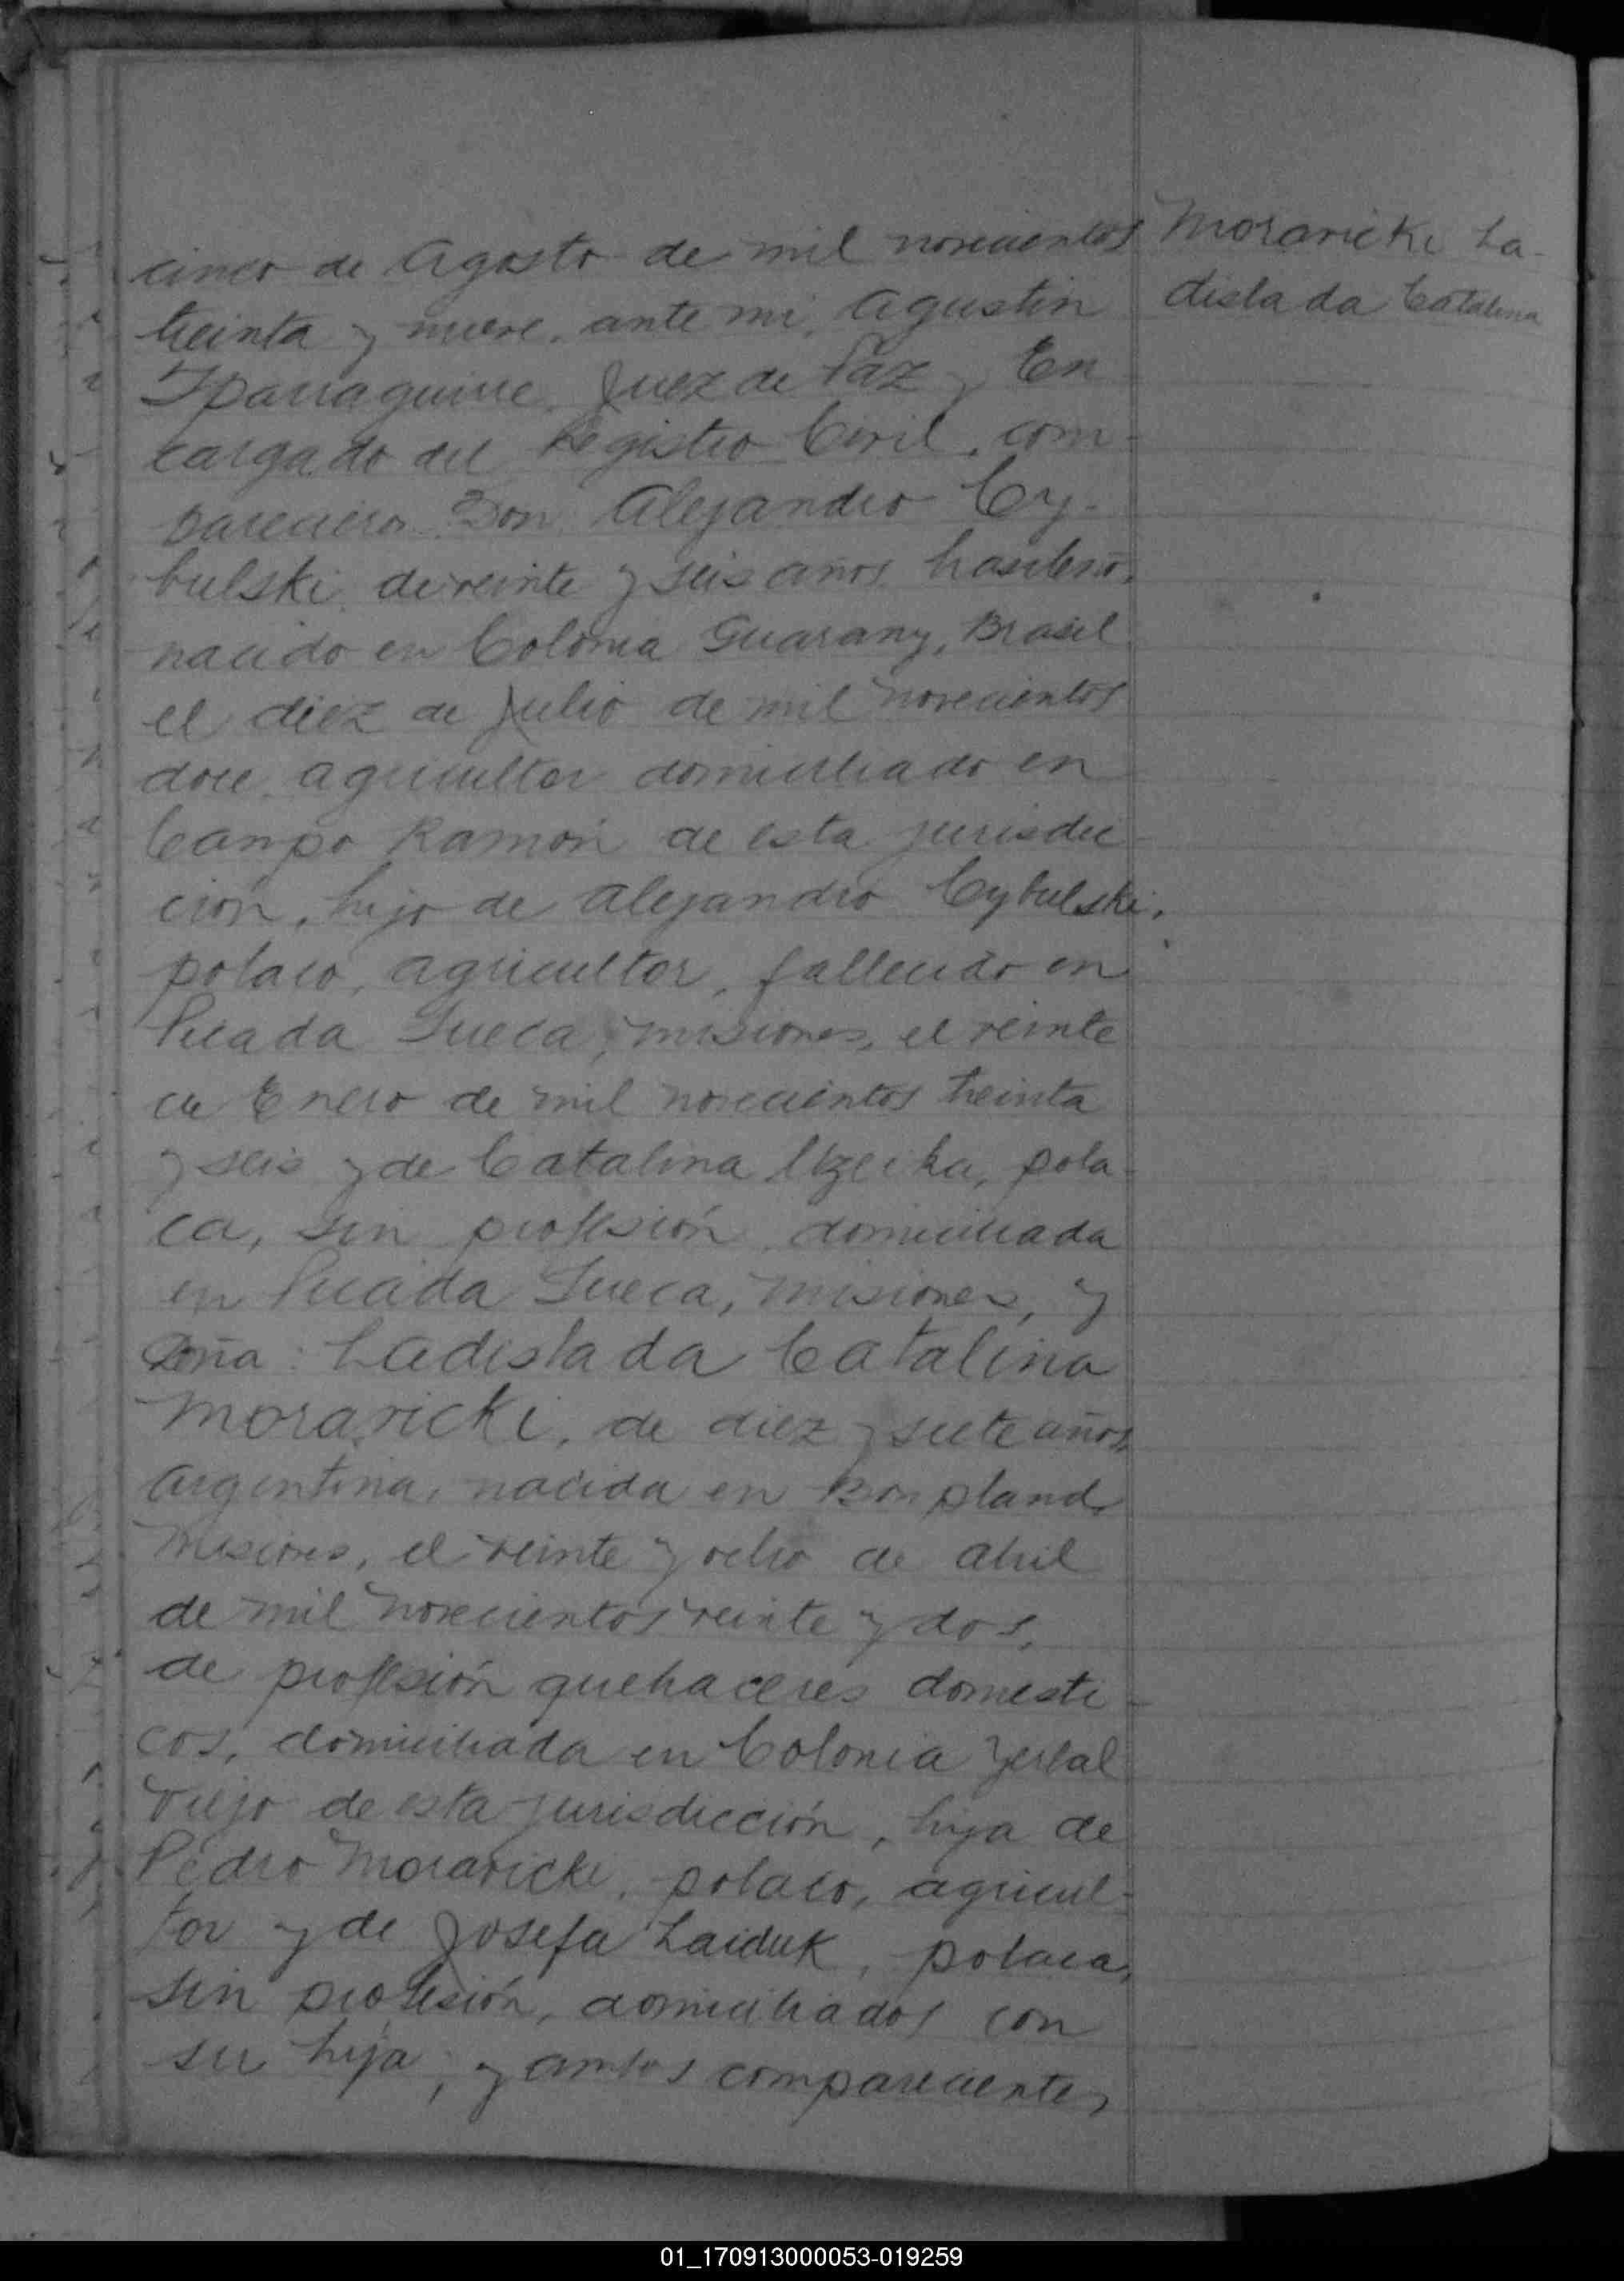 cinco de Agosto de mil novecientos
treinta y nueve, ante mi, Agustin
Iparraguirre, Juez de Paz y En
cargado del Registro Civil, com-
parecieron Don Alejandro Cy-
bulski, de veinte y seis años, brasileño,
nacido en Colonia Guarany, Brasil
el diez de Julio de mil novecientos
doce, agricultor domiciliado en
Campo Ramón de esta jurisdic-
ción, hijo de Alejandro Cybulski,
polaco, agricultor, fallecido en
Picada Sueca, Misiones, el veinte
de Enero de mil novecientos treinta
y seis y de Catalina pola-
ca, sin profesión, domiciliada
en Picada Sueca, Misiones, y
Doña: Ladislada Catalina
Moravicki, de diez y siete años,
Argentina, nacida en Bonpland,
Misiones, el veinte y ocho de Abril
de mil novecientos veinte y dos,
de profesión quehaceres domesti-
cos, domiciliada en Colonia Yerbal
Viejo de esta jurisdicción, hija de
Pedro Moravicki, polaco, agricul-
tor y de Josefa Laiduk, polaca,
sin profesión, domiciliados con
su hija, y ambos comparecientes
Moravicki La-
dislada Catalina
01_170913000053-019259